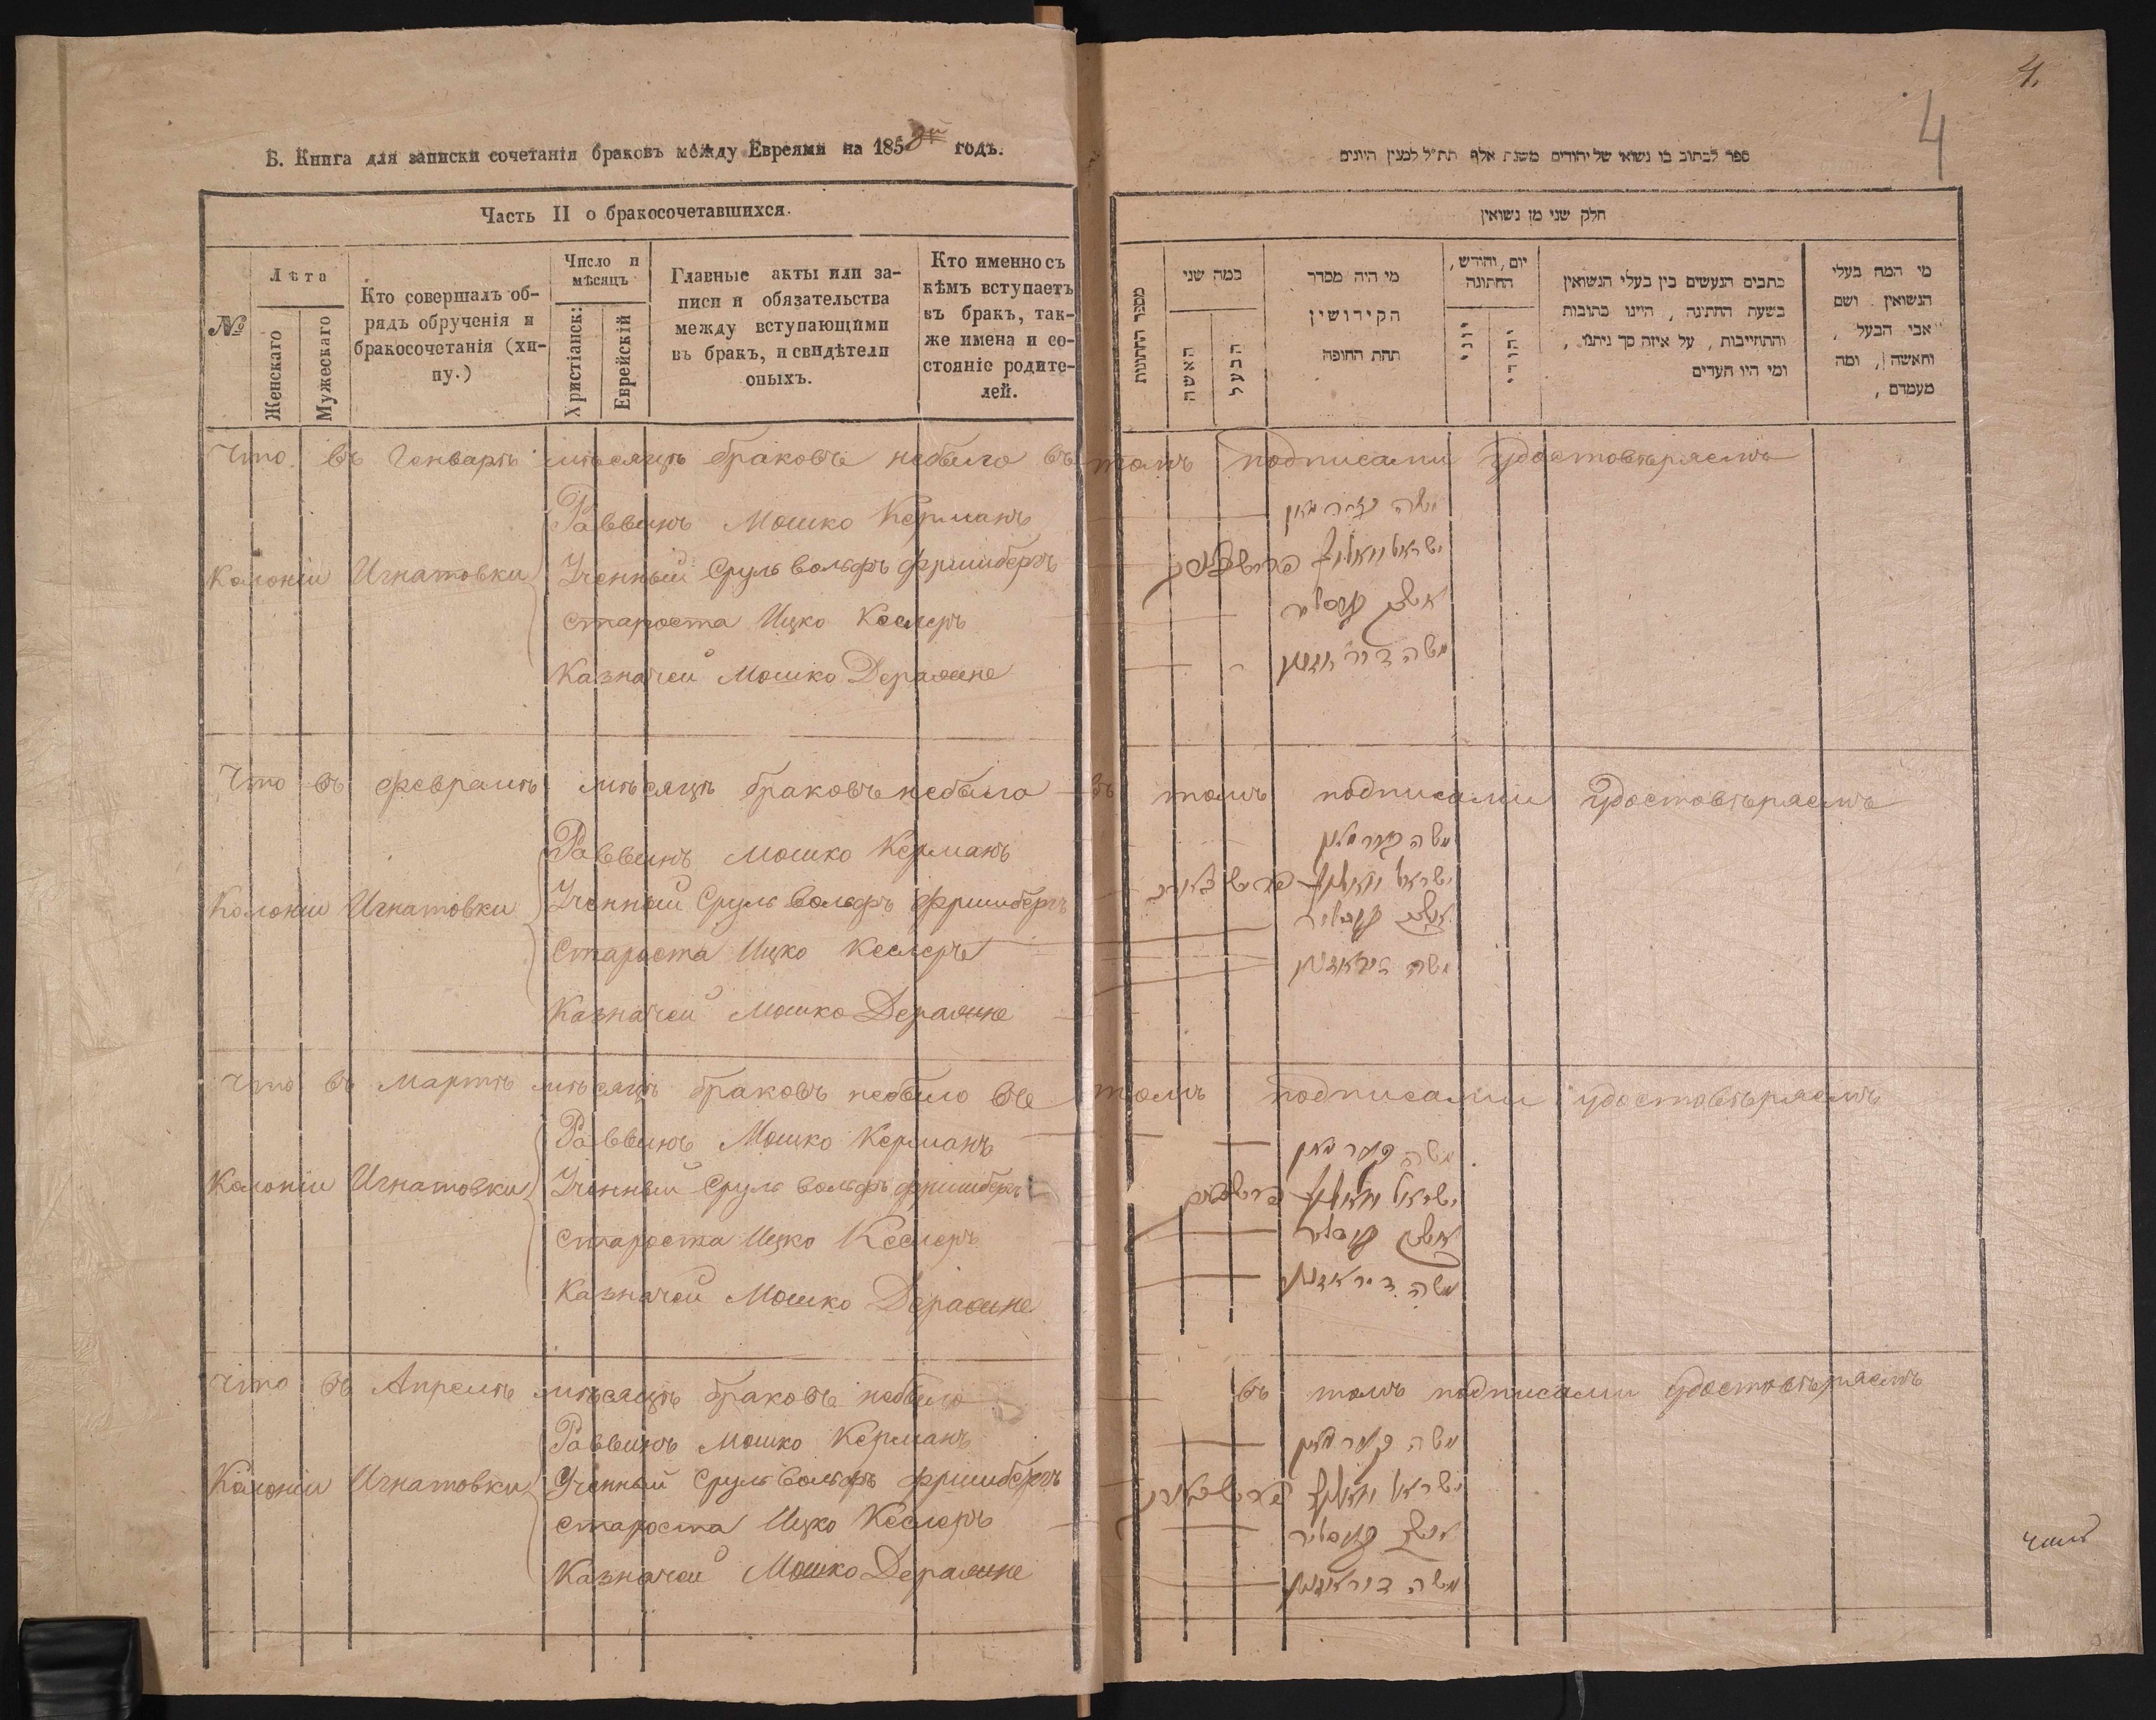 4.
4
Б. Книга для записки сочетанія браковъ между Евреями на 185 годъ.
Часть II о бракосочетавшихся.
№
Лѣта
Женскаго
Мужескаго
Кто совершалъ об-
рядъ обрученія и
бракосочетанія (хи-
пу.)
Число и
мѣсяцъ
Христіанск:
Еврейскій
Главные акты или за-
писи и обязательства
между вступающими
въ бракъ, и свидѣтели
оныхъ.
Кто именно съ
кѣмъ вступаетъ
въ бракъ, так-
же имена и со-
стояніе родите-
лей.
ספר לכתוב בו נשואי של יהודים משנת אלף תת״ל למנין היונים
חלק שני מן נשואין
מספר החתונות
כמה שני
האשה
הבעל
מי היה מסדר
הקידושין
תחת החופה
יום, וחודש,
החתונה
יוני
יהודי
כתבים הנעשים בין בעלי הנשואין
בשעת החתונה, היינו כתובות
והתחייבות, על איזה סך ניתנו,
ומי היו העדים
מי המה בעלי
הנשואין ושם
אבי הבעל,
והאשה, ומה
מעמדם,
Что въ Генварѣ мѣсяцѣ браковъ небыло въ томъ подписами удостовѣряемъ
Раввинъ Мошко Керманъ משה קערמאן
Колоніи Игнатовки Ученный Сруль Вольфъ Фришбергъ ישראל וואלף
Староста Ицко Кеслеръ איצק קעסליר
Казначеи Мошко משה
Что въ февралѣ мѣсяцѣ браковъ небыло въ томъ подписами удостовѣряемъ
Раввинъ Мошко Керманъ משה קערמאן
Колоніи Игнатовки Ученный Сруль Вольфъ Фришбергъ ישראל וואלף
Староста Ицко Кеслеръ איצק קעסליר
Казначеи Мошко משה
Что въ Мартѣ мѣсяцѣ браковъ небыло въ томъ подписами удостовѣряемъ
Раввинъ Мошко Керманъ משה קערמאן
Колоніи Игнатовки Ученный Сруль Вольфъ Фришбергъ ישראל וואלף
Староста Ицко Кеслеръ איצק קעסליר
Казначеи Мошко משה
Что въ Апрелѣ мѣсяцѣ браковъ небыло въ томъ подписами удостовѣряемъ
Раввинъ Мошко Керманъ משה קערמאן
Колоніи Игнатовки Ученный Сруль Вольфъ Фришбергъ ישראל וואלף
Староста Ицко Кеслеръ איצק קעסליר
Казначеи Мошко משה